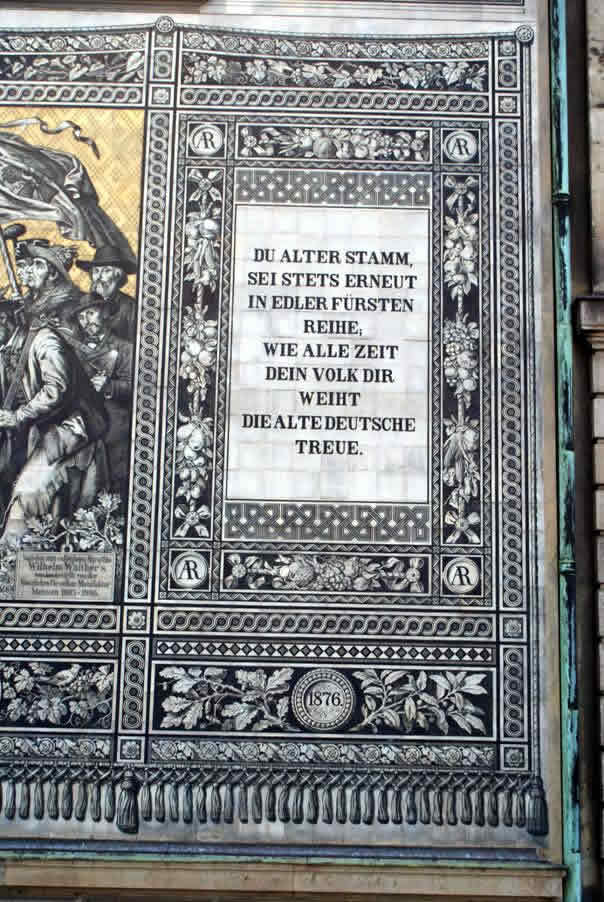 AR
AR
DU ALTER STAMM,
SEI STETS ERNEUT
IN EDLER FÜRSTEN
REIHE,
WIE ALLE ZEIT
DEIN VOLK DIR
WEIHT
DIE ALTE DEUTSCHE
TREUE.
AR
AR
Wilhelm Walther's
1876.